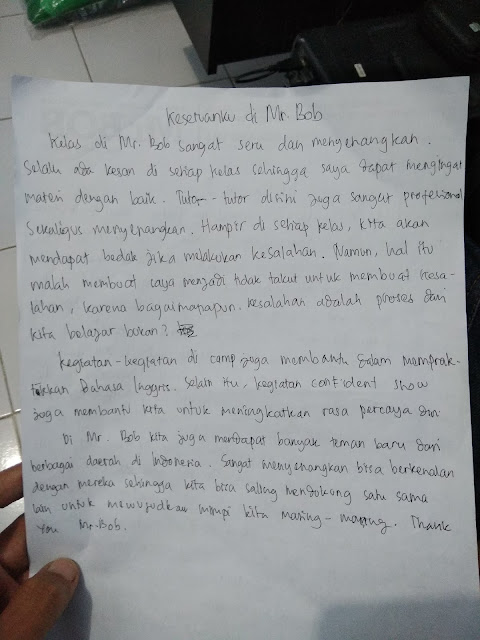 Keseruanku di Mr. Bob
Kelas di Mr. Bob sangat seru dan menyenangkan.
Selalu ada kesan di setiap kelas sehingga saya dapat mengingat
materi dengan baik. Tutor-tutor disini juga sangat profesional
sekaligus menyenangkan. Hampir di setiap kelas, kita akan
mendapat bedak jika melakukan kesalahan. Namun, hal itu
malah membuat saya menjadi tidak takut untuk membuat kesa-
lahan, karena bagaimanapun kesalahan adalah proses dari
kita belajar bukan?
Kegiatan-kegiatan di camp juga membantu dalam memprak-
tikkan Bahasa Inggris. Selain itu, kegiatan confident show
juga membantu kita untuk meningkatkan rasa percaya diri
Di Mr. Bob kita juga mendapat banyak teman baru dari
berbagai daerah di Indonesia. Sangat menyenangkan bisa berkenalan
dengan mereka sehingga kita bisa saling mendukung satu sama
lain untuk mewujudkan mimpi kita masing-masing. Thank
you Mr. Bob.